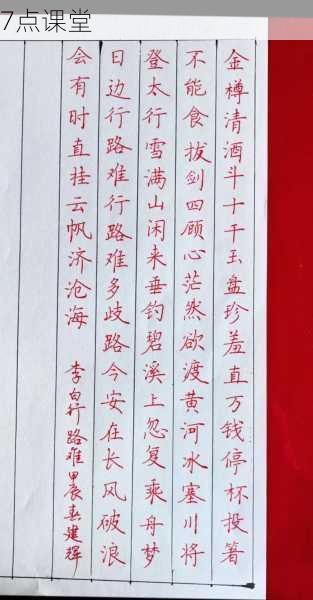 7点课堂
金樽清酒斗十千玉盘珍羞直万钱停杯投箸
不能食拔剑四顾心茫然欲渡黄河冰塞川将
登太行雪满山闲来垂钓碧溪上忽复乘舟梦
日边行路难行路难多歧路今安在长风破浪
会有时直挂云帆济沧海 李白行路难甲辰春建辉